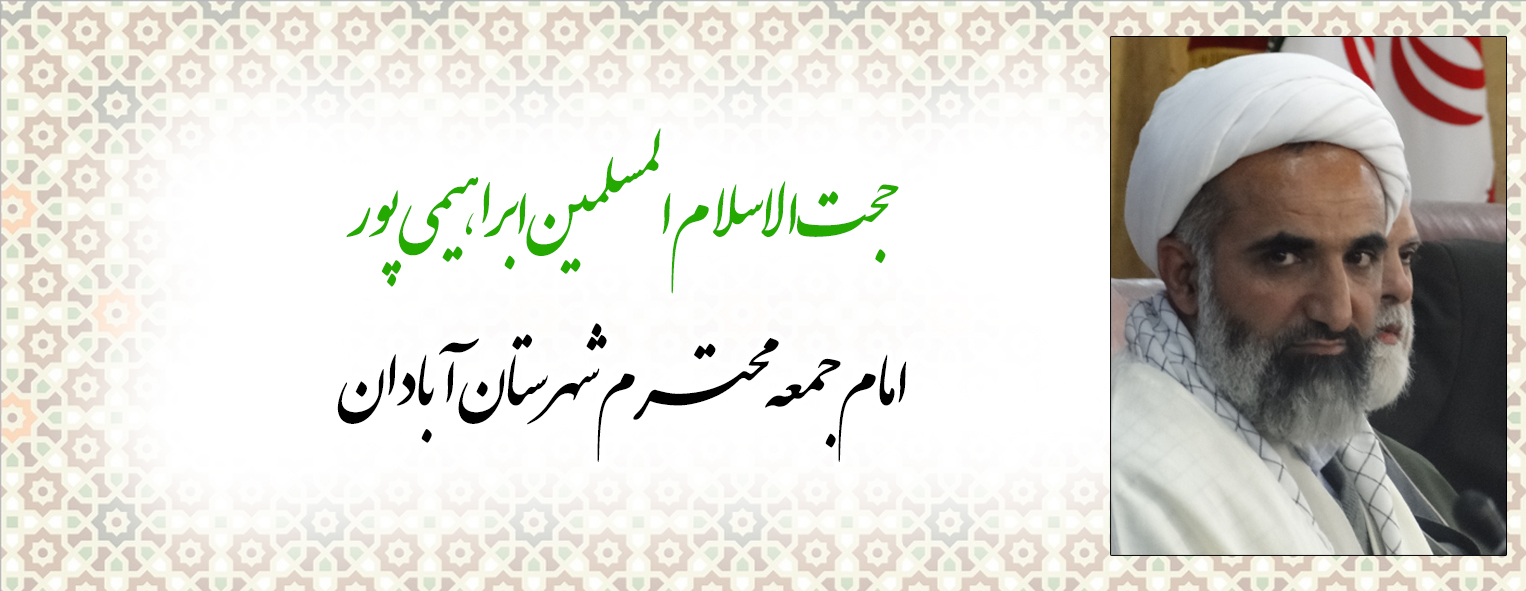 حجت الاسلام المسلمین ابراهیمی پور
امام جمعه محترم شهرستان آبادان